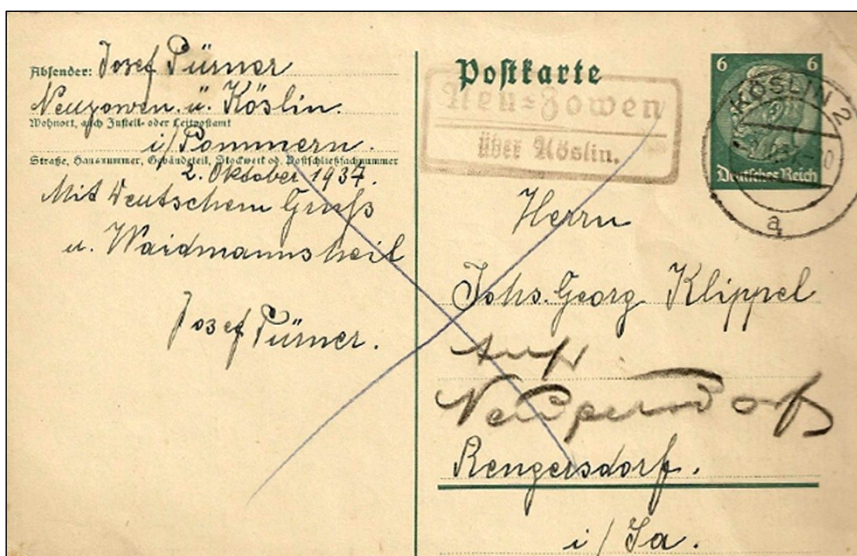 Absender: Josef Pürner
Neuzowen. ü. Köslin.
Wohnort, auch Zustell- oder Leitpostamt
i/Pommern.
Straße, Hausnummer, Gebäudeteil, Stockwerk od. Postschließfachnummer
2. Oktober 1937.
Mit Deutschem Gruß
u. Waidmannsheil
Josef Pürner.
Postkarte
Neu-Zowen
über Köslin.
6 6
KÖSLIN 2
Deutsches Reich
a
Herrn
Johs. Georg Klippel
Rengersdorf.
i/Sa.